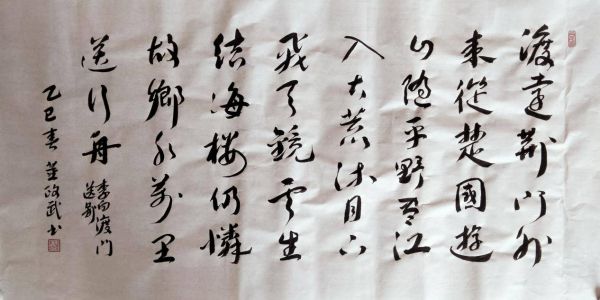 渡遠荊門外
來從楚國遊
山隨平野盡江
入大荒流月下
飛天鏡云生
結海樓仍憐
故鄉水萬里
送行舟
李白渡門
送別
乙巳春董政武书